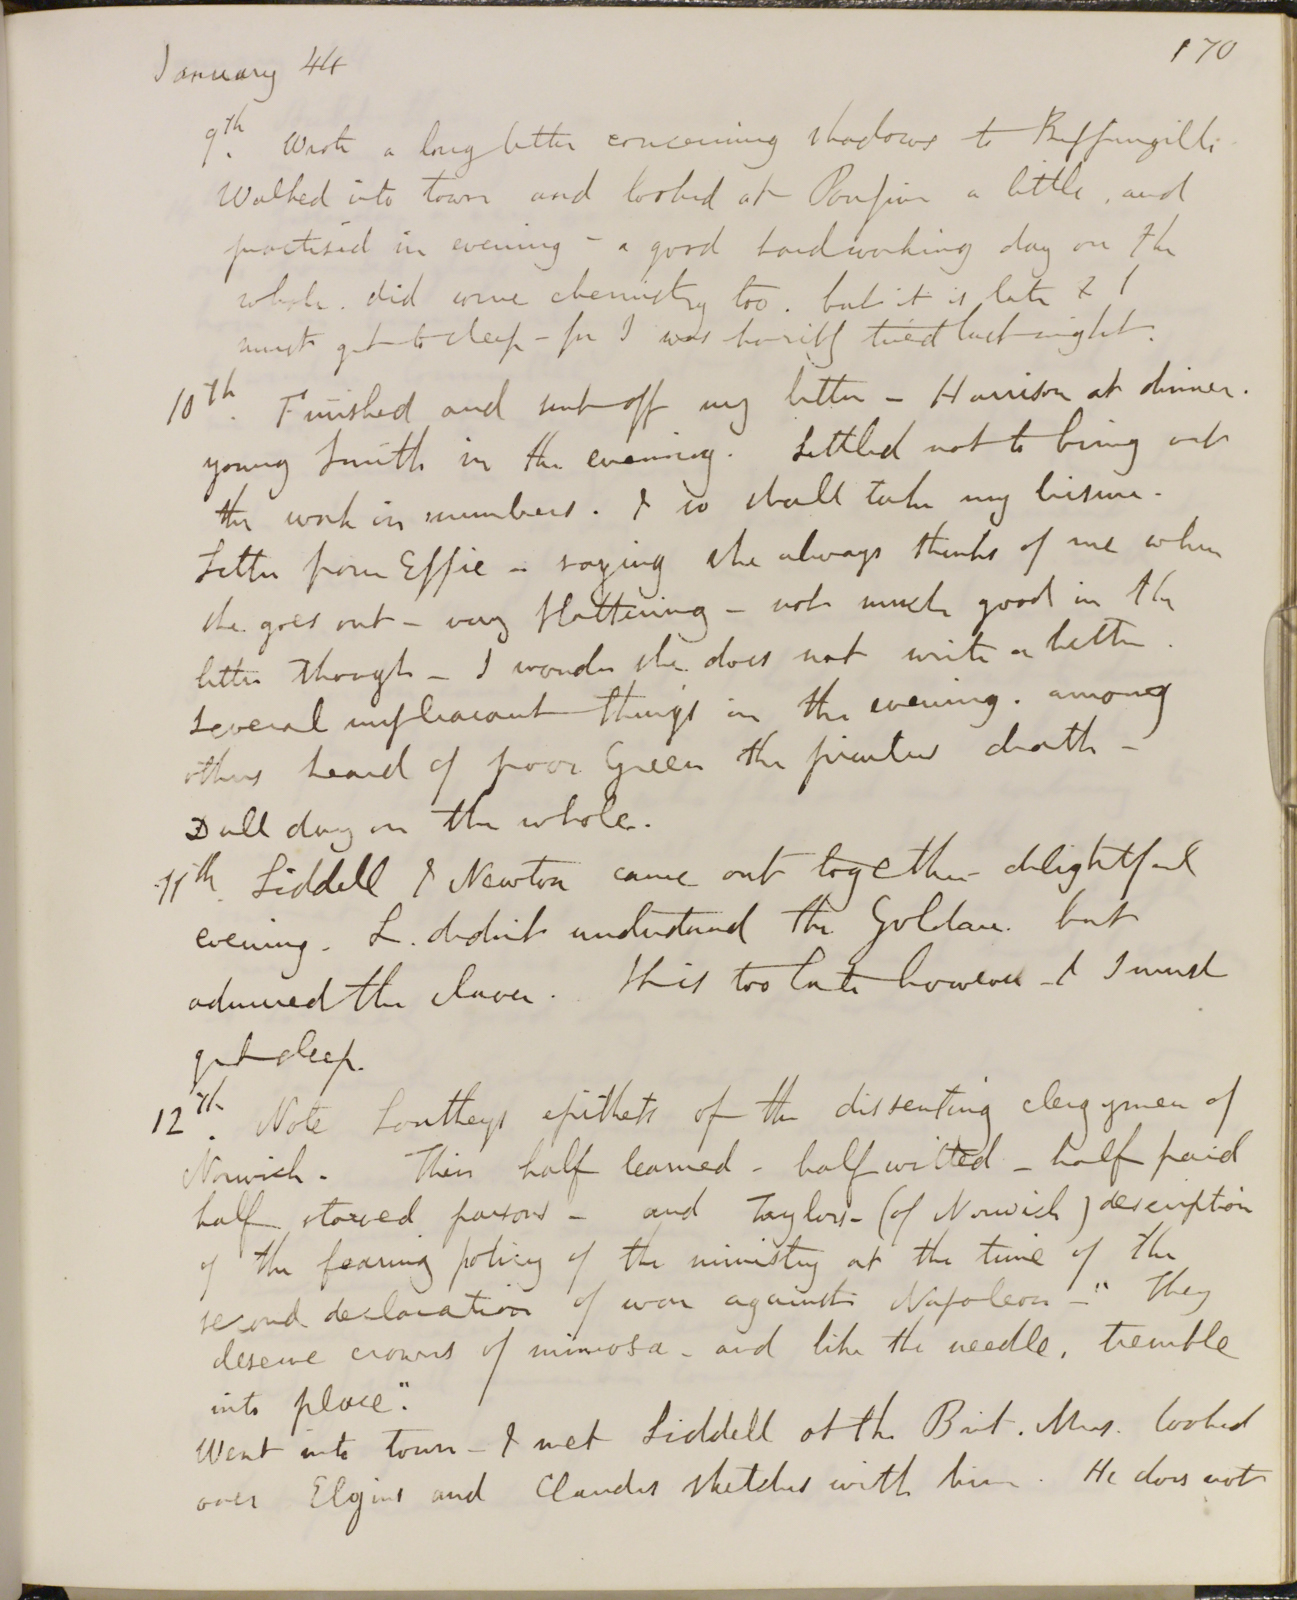 January 44
170
9th. Wrote a long letter concerning shadows to
Walked into town and looked at Poussin a little, and
practised in evening - a good hardworking day on the
whole. did some chemistry too. but it is late & I
must get to sleep - for I was horribly tired last night.
10th. Finished and sent off my letter - Harrison at dinner.
young Smith in the evening. Settled not to bring out
the work in numbers. & so shall take my leisure.
Letter from Effie - saying she always thinks of me when
she goes out - very flattering - not much good in the
letter though - I wonder she does not write a better.
Several unpleasant things in the evening. among
others heard of poor Green the printers death -
Dull day on the whole.
11th. Liddell & Newton came out together - delightful
evening. L. didn't understand the Goldau. but
admired the slaver. It is too late however - & I must
get sleep.
12th. Note Southeys epithets of the dissenting clergymen of
Norwich. Their half learned - half witted - half paid
half starved parsons - and Taylors - (of Norwich) description
of the fearing policy of the ministry at the time of the
second declaration of war against Napoleon - "They
deserve crowns of mimosa - and like the needle, tremble
into place".
Went into town - & met Liddell at the Brit. Mus. looked
over Elgins and Claudes sketches with him. He does not